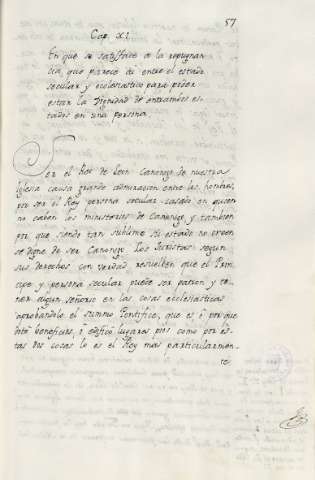 57
Cap. XI.
En que se satisface a la repugnan
cia, que parece ai entre el estado
secular y eclesiastico para poder
estar la Dignidad de entrambos es-
tados en una persona.
Ser el Rei de Leon Canonigo de nuestra
iglesia causa grande admiracion entre los hombres,
por ser el Rey persona secular casado en quien
no caben los ministerios de Canonigo, y tambien
por que siendo tan sublime su estado no creen
se digne de ser Canonigo. Los Juristas segun
sus derechos con verdad resuelven que el Prin
cipe y persona secular puede ser patron y te-
ner algun señorio en las cosas eclesiasticas
aprobandolo el summo Pontifice, que es, ó porque
dotó beneficios, ó edificó lugares pios como por es-
tas dos cosas lo es el Rey mas particularmen-
te